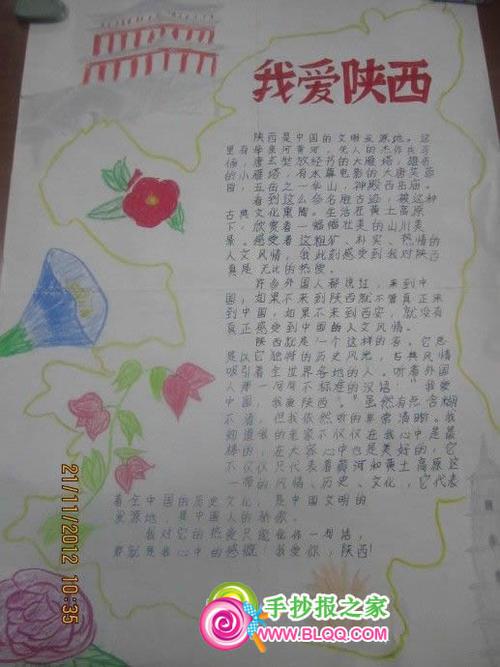 我爱陕西
陕西是中国的文明发源地。这
里有母亲河黄河,先人的杰作兵马
俑,唐玄奘放经书的大雁塔,雄奇
的小雁塔,有水幕电影的大唐芙蓉
园,五岳之一华山,神殿西岳庙。
看到这么命名胜古迹,被这种
古典文化熏陶。生活在黄土高原
下,欣赏着一幅幅壮美的山川美
景。感受着这粗犷、朴实、热情的
人文风情,我此刻感受到我对陕西
真是无比的热爱。
许多外国人都说过,来到中
国,如果不来到陕西就不算真正来
到中国,如果不来到西安,就没有
真正感受到中国的人文风情。
陕西就是一个这样的省。它总
是以它独特的历史风光,古典风情
吸引着全世界各地的人。听着外国
人那一句句不标准的汉语“我爱
中国,我爱陕西。”虽然有点含糊
不清,但我依然听的非常清晰。我
知道我的老家不仅仅在我心中是最
棒的,在大家心中也是美好的,它
不仅仅只代表着黄河和黄土高原这
一带的风情、历史、文化,它代表
着全中国的历史文化,是中国文明的
发源地,是中国人的骄傲。
我对它的热爱只能化作一句话,
那就是我心中的感慨:我爱你,陕西!
21/11/2012 10:35
手抄报之家
www.BLQQ.com